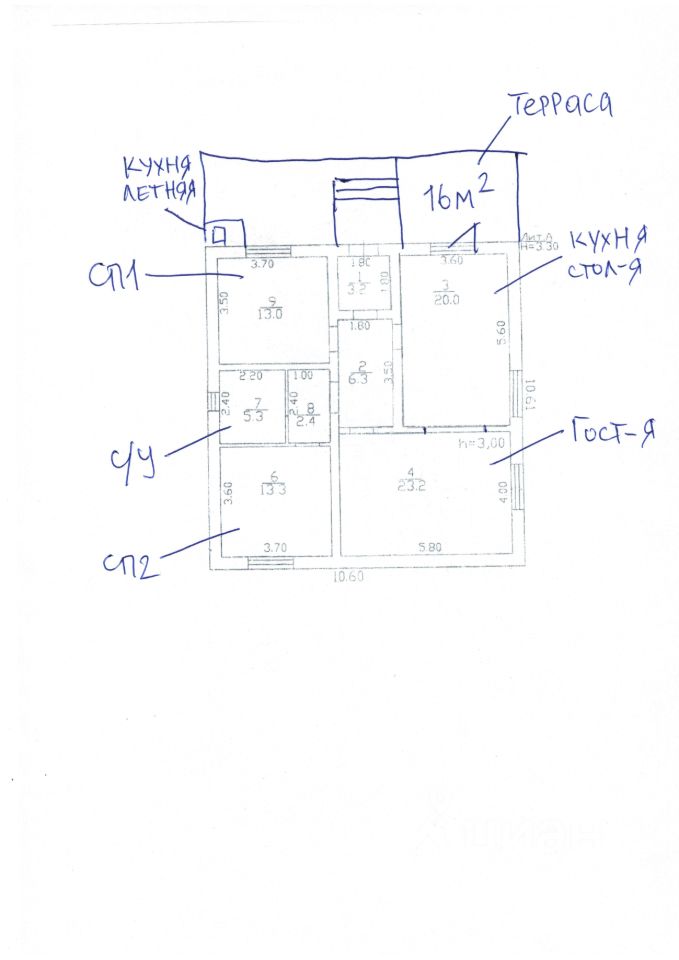 Терраса
КУХНЯ
ЛЕТНЯЯ
16м²
Лит.А
H=3.30
КУХНЯ
СТОЛ-Я
СП1
3.70
3.50
9
13.0
1.80
1
3.2
1.80
3.60
3
20.0
5.60
1.80
2
6.3
3.50
2.20
2.40
7
5.3
1.00
2.40
8
2.4
10.61
С/У
Гост-я
h=3,00
4
23.2
4.00
5.80
6
13.3
3.60
3.70
СП2
10.60
циан